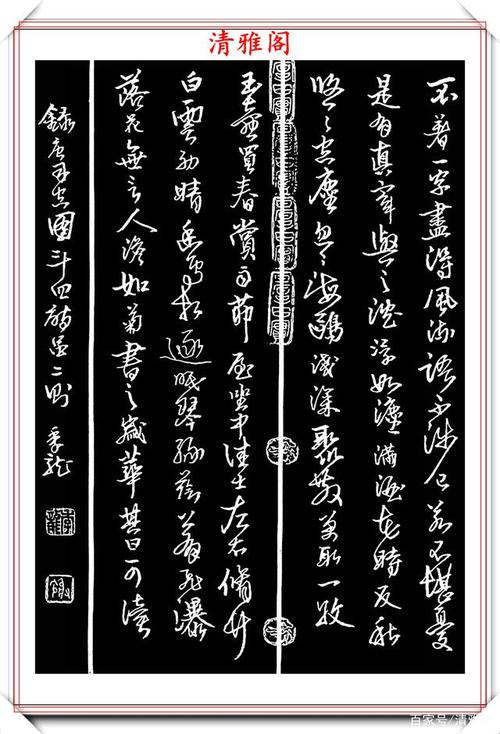 清雅阁
不著一字盡得風流語不涉己若不堪憂
是有真宰與之沉浮如漉滿酒花時反秋
悠〻空塵忽〻海鷗淺深聚散萬取一收
玉壺買春賞雨茆屋坐中佳士左右脩竹
白雲初晴幽鳥相逐眠琴綠蔭上有飛瀑
落花無言人澹如菊書之歲華其曰可讀
錄唐司空圖廿四詩品二則 季龍
百家号/清雅